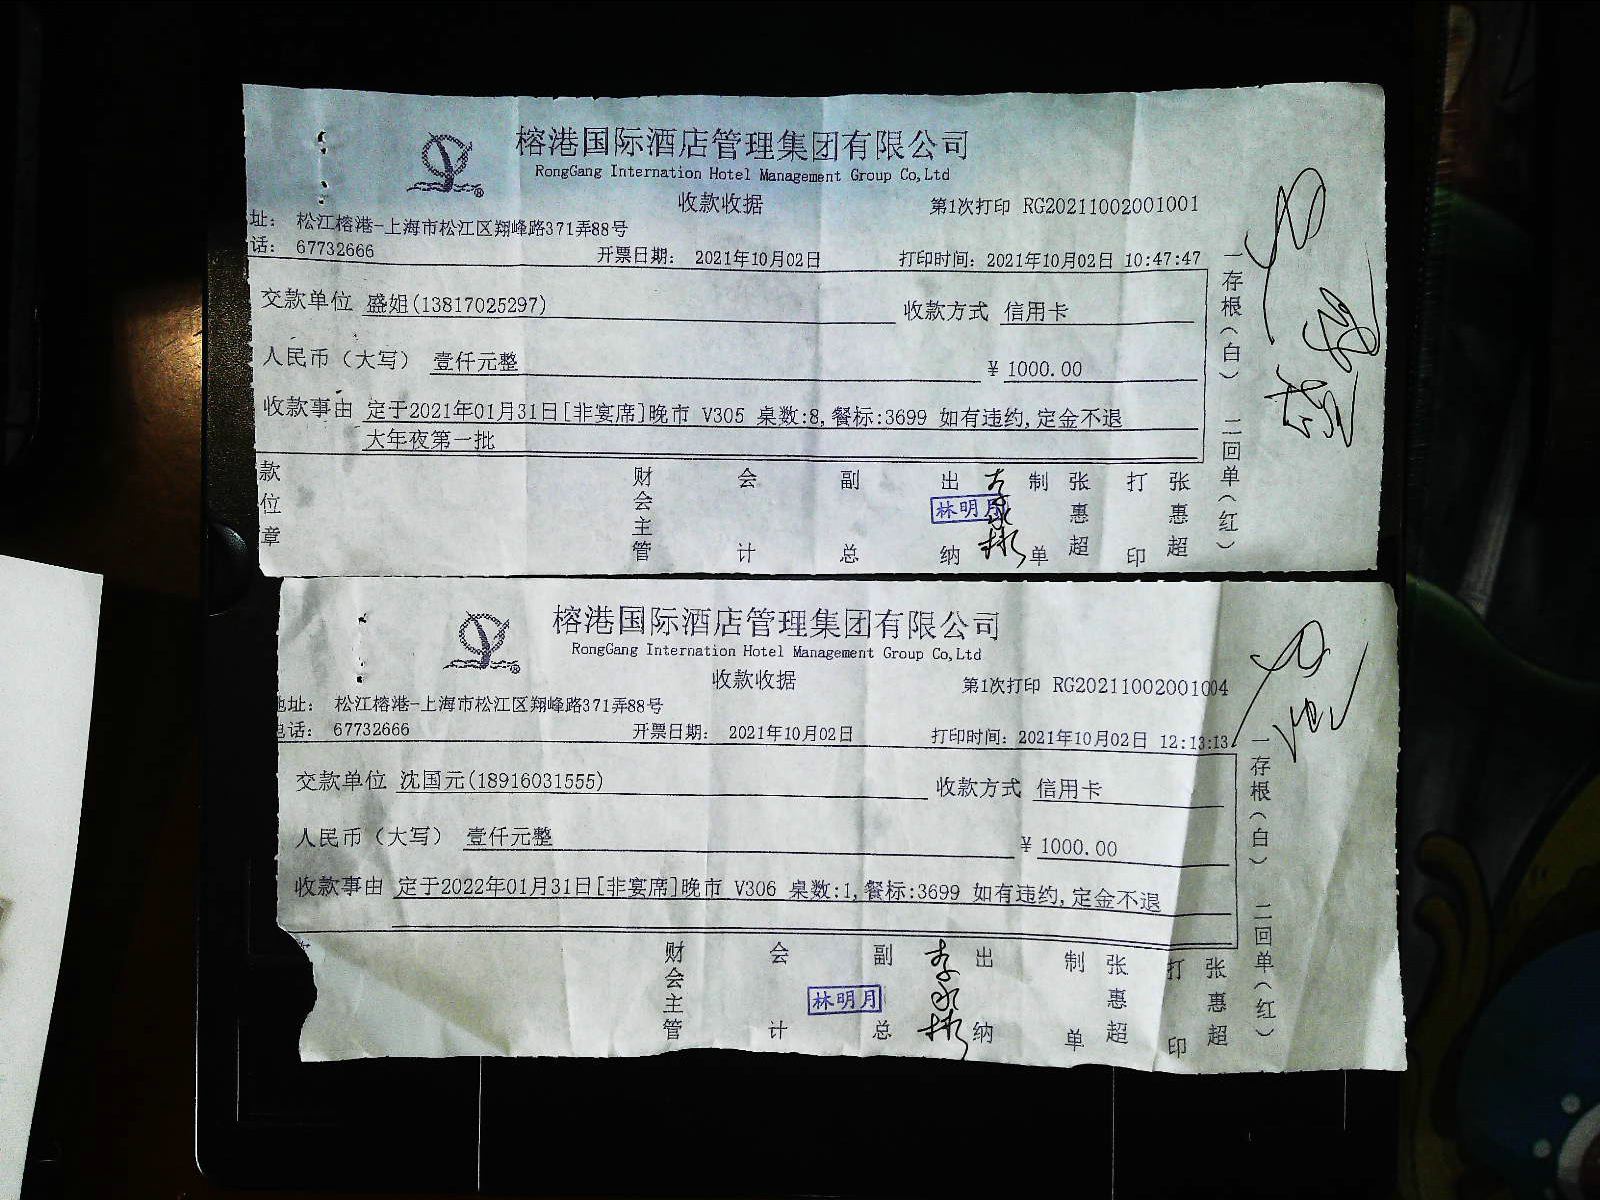 榕港国际酒店管理集团有限公司
RongGang Internation Hotel Management Group Co,Ltd
收款收据
第1次打印 RG20211002001001
址： 松江榕港-上海市松江区翔峰路371弄88号
话： 67732666 开票日期： 2021年10月02日 打印时间：2021年10月02日 10:47:47
交款单位 盛姐(13817025297) 收款方式 信用卡
人民币（大写） 壹仟元整 ¥ 1000.00
收款事由 定于2021年01月31日[非宴席]晚市 V305 桌数:8,餐标:3699 如有违约,定金不退
大年夜第一批
款位章 财会主管 会计 副总 出纳 李永彬 制单 张惠超 打印 张惠超
林明月
一存根（白） 二回单（红）
榕港国际酒店管理集团有限公司
RongGang Internation Hotel Management Group Co,Ltd
收款收据
第1次打印 RG20211002001004
地址： 松江榕港-上海市松江区翔峰路371弄88号
电话： 67732666 开票日期： 2021年10月02日 打印时间：2021年10月02日 12:13:13
交款单位 沈国元(18916031555) 收款方式 信用卡
人民币（大写） 壹仟元整 ¥ 1000.00
收款事由 定于2022年01月31日[非宴席]晚市 V306 桌数:1,餐标:3699 如有违约,定金不退
财会主管 会计 副总 李永彬 出纳 制单 张惠超 打印 张惠超
林明月
一存根（白） 二回单（红）